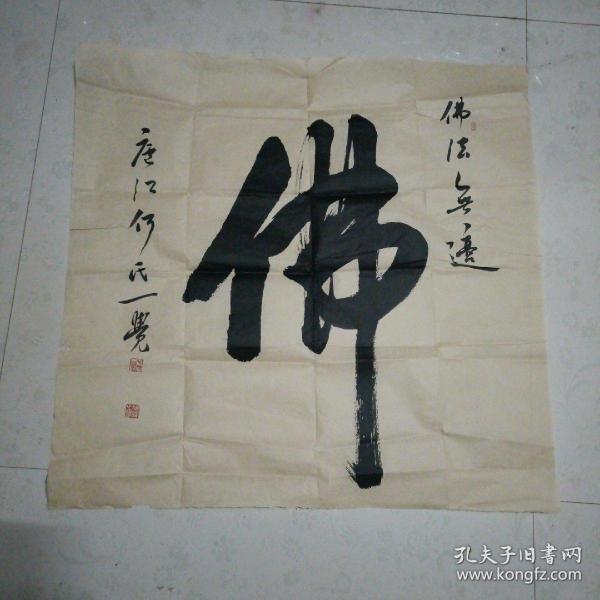 佛法無邊
佛
唐江何氏一覺
孔夫子旧书网
www.kongfz.com